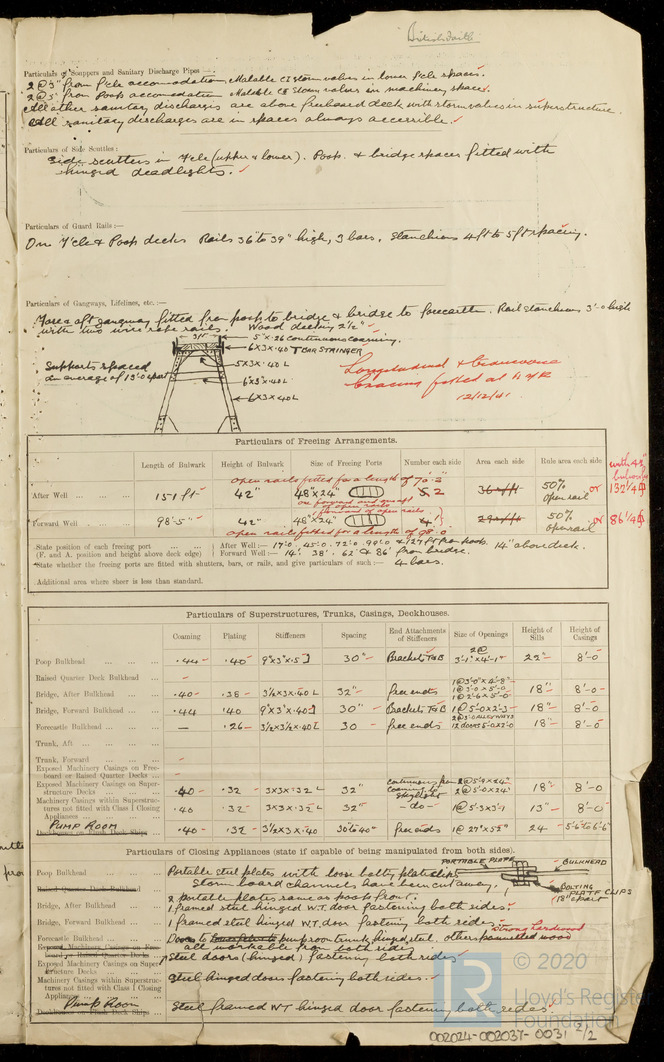 British Faith
Particulars of Scuppers and Sanitary Discharge Pipes :—
2 @ 3" from f'cle accomodation, Malable CI storm valves in lower f'cle spaces.
2 @ 5" from Poop accomodation Malable CI Storm valves in machinery spaces.
All other sanitary discharges are above freeboard deck with storm valves in superstructure.
All sanitary discharges are in spaces always accessible.
Particulars of Side Scuttles :
Side scutters in F'cle (upper & lower). Poop. & bridge spaces fitted with
hinged deadlights.
Particulars of Guard Rails :—
On F'cle & Poop decks Rails 36" to 39" high, 3 bars. Stanchions 4 ft to 5 ft spacing.
Particulars of Gangways, Lifelines, etc. :—
Fore & aft gangway fitted from poop to bridge & bridge to forecastle. Rail stanchions 3'-0 high
with two wire rope rails. Wood decking 2½"
5" x .26 continuous coaming.
6x3x.40 T BAR STRINGER
5x3x.40 L
6x3x.40 L
6x3x.40 L
Supports spaced
an average of 13'-0 apart
Longitudinal & transverse
bracing fitted at
12/12/41
Particulars of Freeing Arrangements.
Length of Bulwark Height of Bulwark Size of Freeing Ports Number each side Area each side Rule area each side
open rails fitted for a length of 70'-2"
with 42"
bulwark
After Well 151 ft 42" 48"x24" 5 2 36 sq/ft 50% open rail or 132/4
one forward and one aft
of open rails
forward of open rails
Forward Well 98'-5" 42" 48"x24" 4 50% open rail or 86/4
open rails fitted for a length of 98'-0
State position of each freeing port
(F. and A. position and height above deck edge)
After Well :— 17'-0. 45'-0. 72'-0. 99'-0 & 127 ft from poop. 14" above deck.
Forward Well :— 14'. 38'. 62' & 86' from bridge.
State whether the freeing ports are fitted with shutters, bars, or rails, and give particulars of such :— 4 bars.
Additional area where sheer is less than standard.
Particulars of Superstructures, Trunks, Casings, Deckhouses.
Coaming Plating Stiffeners Spacing End Attachments of Stiffeners Size of Openings Height of Sills Height of Casings
Poop Bulkhead .44 .40 9"x3"x.5 ] 30" Brackets T&B 2 @ 3'-1"x4'-1" 22" 8'-0
Raised Quarter Deck Bulkhead —
Bridge, After Bulkhead .40 .38 3½x3x.40 L 32" free ends 1@3'-0"x4'-8" 1@3'-0x5'-0 1@2'-6x5'-0 18" 8'-0
Bridge, Forward Bulkhead .44 .40 9"x3"x.40 ] 30" Brackets T&B 1@5'-0x2'-3 18" 8'-0
Forecastle Bulkhead — .26 3½x3½x.40 L 30 free ends 2@3'-0 ALLEYWAYS 12 DOORS 5'-0x2'-0 18" 8'-0
Trunk, Aft —
Trunk, Forward —
Exposed Machinery Casings on Freeboard or Raised Quarter Decks —
Exposed Machinery Casings on Superstructure Decks .40 .32 3x3x.32 L 32" continuous from coaming to skylight 2@5'-9x24" 2@5'-0x24" 18" 8'-0
Machinery Casings within Superstructures not fitted with Class I Closing Appliances .40 .32 3x3x.32 L 32" - do - 1@5'-3x3'-1 13" 8'-0
PUMP ROOM
Deckhouses on Flush Deck Ships .40 .32 3½x3x.40 30 to 40" free ends 1@27"x52" 24 5'-6 to 6'-6"
Particulars of Closing Appliances (state if capable of being manipulated from both sides).
PORTABLE PLATE
BULKHEAD
BOLTING
PLATE CLIPS
18" apart
Poop Bulkhead Portable steel plates with loose bolting plate clips
Storm board channels have been cut away.
Raised Quarter Deck Bulkhead
Bridge, After Bulkhead 2 portable plates same as poop front.
1 framed steel hinged W.T. door fastening both sides.
Bridge, Forward Bulkhead 1 framed steel hinged W.T. door fastening both sides
Forecastle Bulkhead Doors to pumproom trunk hinged steel, others strong hardwood
all workable from both sides
Exposed Machinery Casings on Freeboard or Raised Quarter Decks
Exposed Machinery Casings on Superstructure Decks Steel doors (hinged) fastening both sides
Machinery Casings within Superstructures not fitted with Class I Closing Appliances Steel hinged doors fastening both sides.
Pump Room
Deckhouses on Flush Deck Ships Steel framed WT hinged door fastening both sides.
© 2020
Lloyd's Register
Foundation
002024-002037-0031 2/2